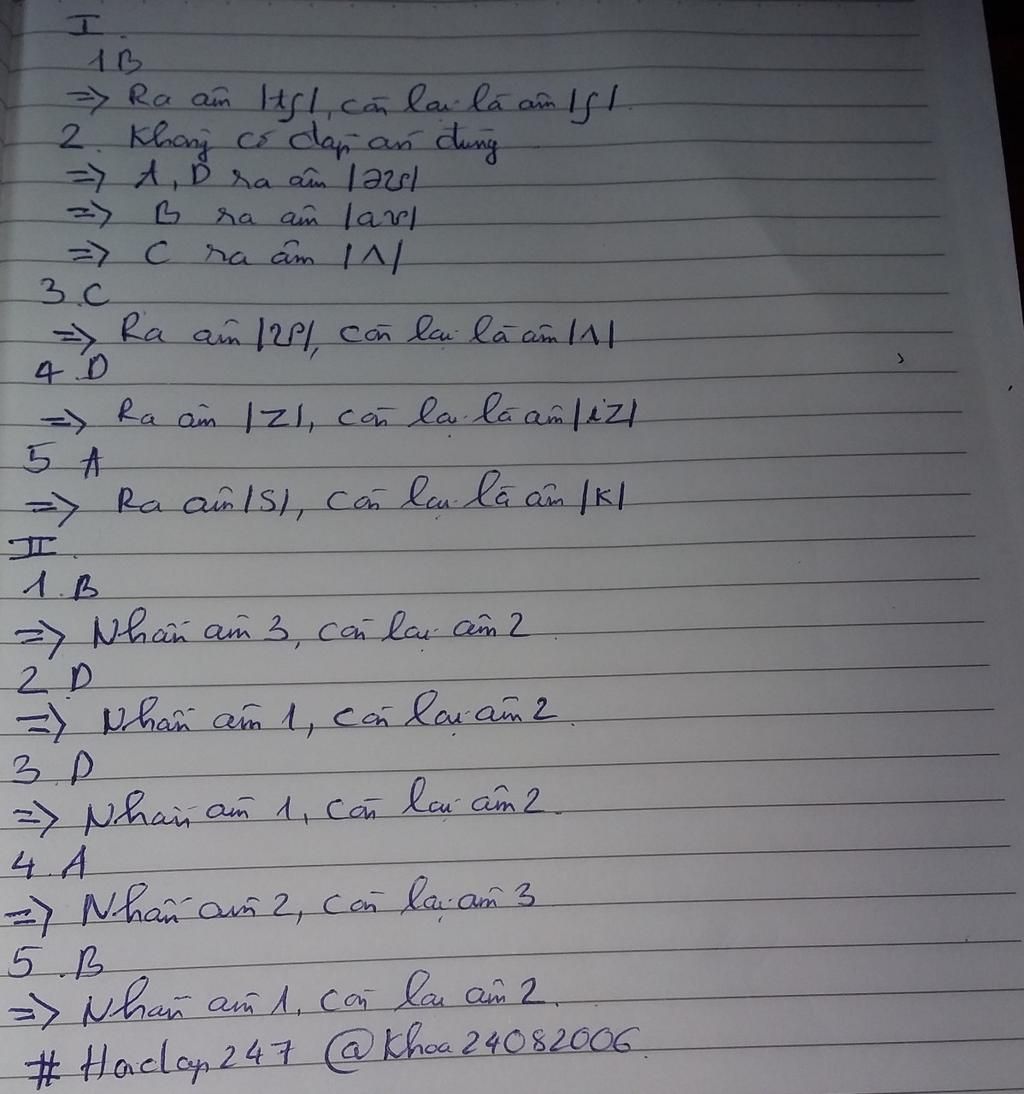 I.
1B
=> Ra âm |tʃ|, còn lại là âm |ʃ|.
2. Không có đáp án đúng
=> A, D ra âm |əʊ|
=> B ra âm |aʊ|
=> C ra âm |ʌ|
3.C
=> Ra âm |ʊ|, còn lại là âm |ʌ|
4.D
=> Ra âm |Z|, còn lại là âm |iZ|
5 A
=> Ra âm |S|, còn lại là âm |K|
II.
1.B
=> Nhấn âm 3, còn lại âm 2
2 D
=> Nhấn âm 1, còn lại âm 2.
3.D
=> Nhấn âm 1, còn lại âm 2.
4.A
=> Nhấn âm 2, còn lại âm 3
5.B
=> Nhấn âm 1, còn lại âm 2.
# Hoidap247 @Khoa24082006.